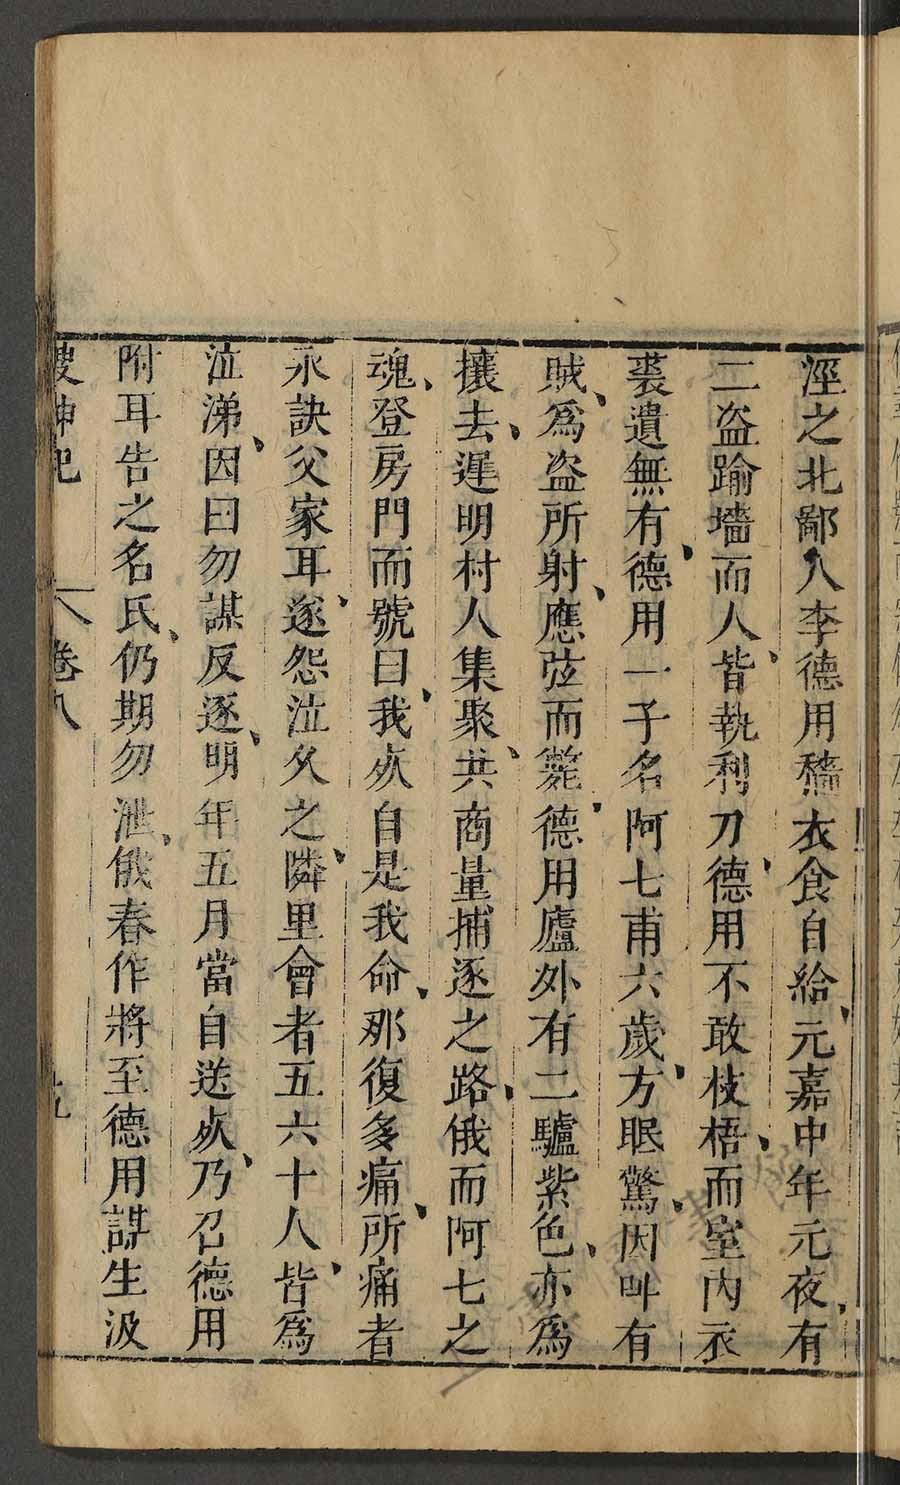 涇之北鄙人李德用稽衣食自給元嘉中年元夜有
二盜踰墻而人皆執利刀德用不敢枝梧而室內衣
裘遺無有德用一子名阿七甫六歲方眠驚因叫有
賊爲盜所射應弦而斃德用廬外有二驢紫色亦爲
攘去遲明村人集聚共商量捕逐之路俄而阿七之
魂登房門而號曰我死自是我命那復多痛所痛者
永訣父家耳遂怨泣久之隣里會者五六十人皆爲
泣涕因曰勿謀反逐明年五月當自送死乃召德用
附耳告之名氏仍期勿泄俄春作將至德用謀生汲
搜神記 卷八 九